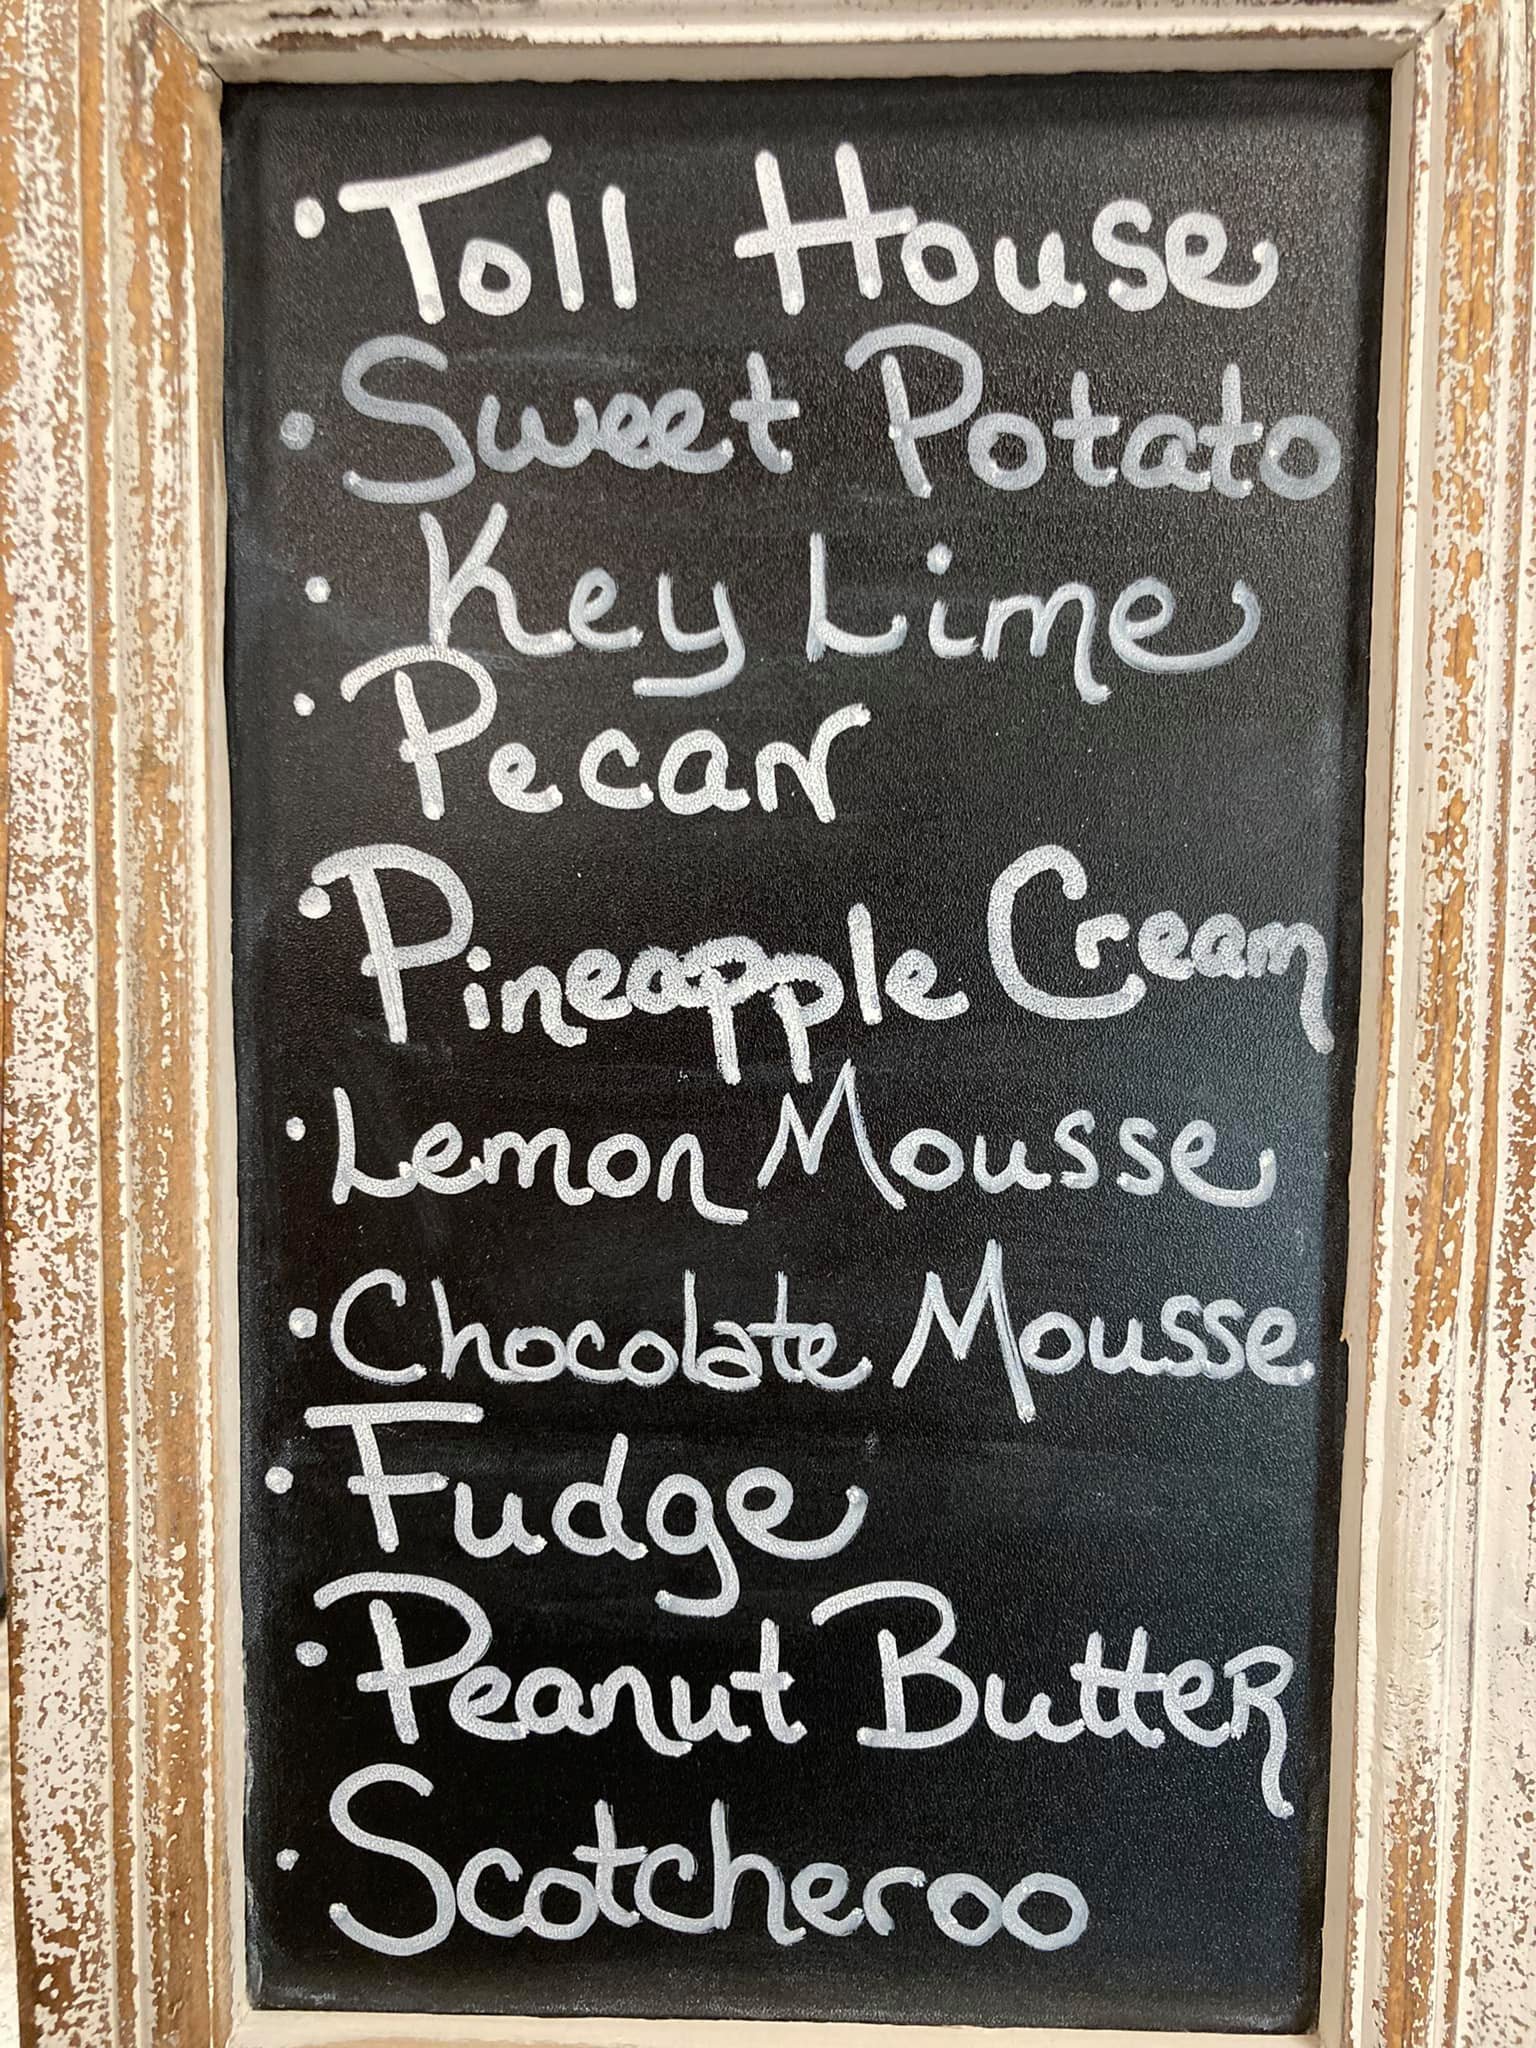 • Toll House
• Sweet Potato
• Key Lime
• Pecan
• Pineapple Cream
• Lemon Mousse
• Chocolate Mousse
• Fudge
• Peanut Butter
• Scotcheroo